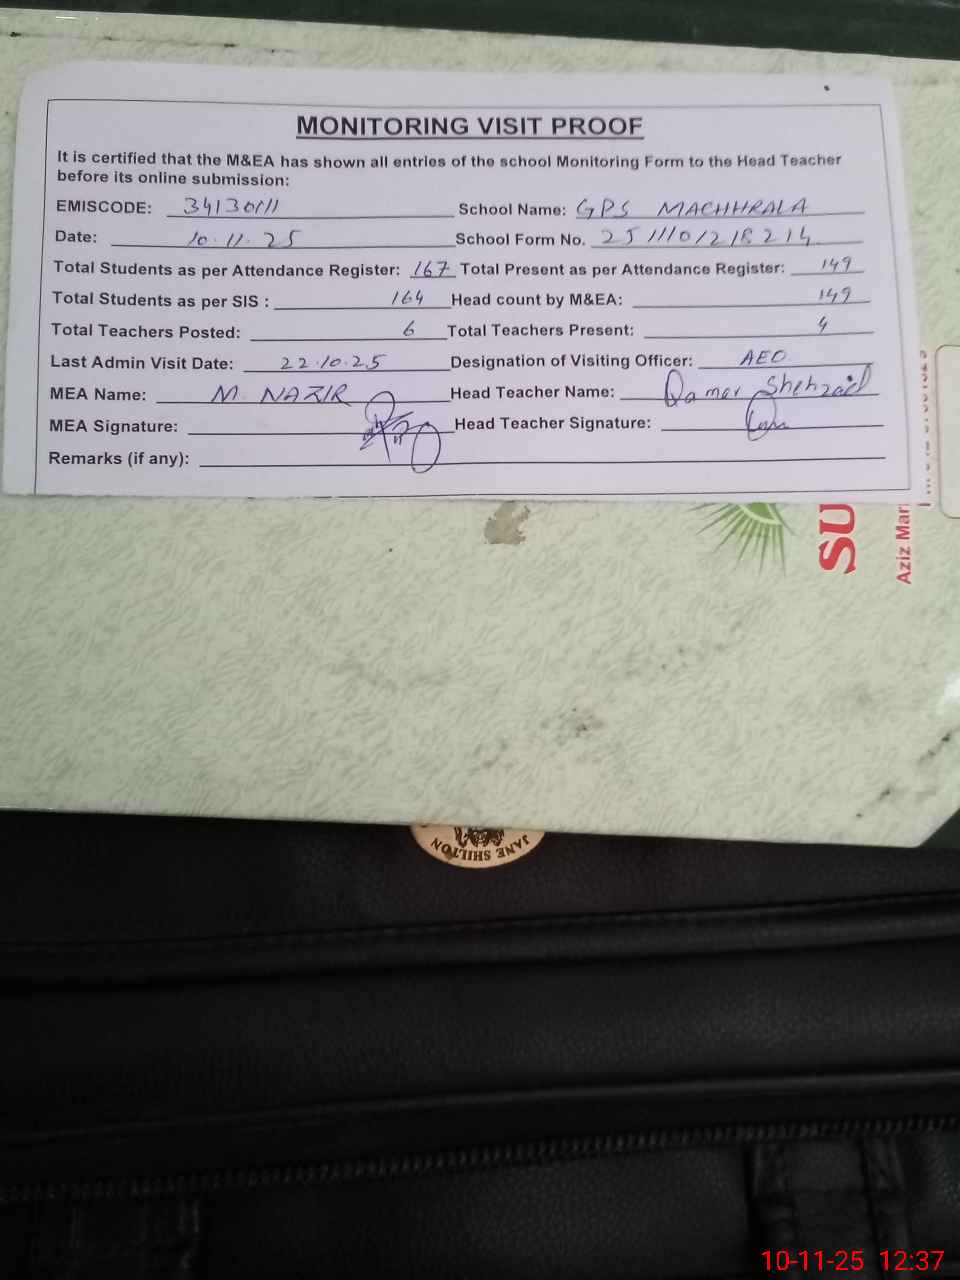 MONITORING VISIT PROOF
It is certified that the M&EA has shown all entries of the school Monitoring Form to the Head Teacher
before its online submission:
EMISCODE: 34130111 School Name: GPS MACHHRALA
Date: 10.11.25 School Form No. 2511101218214
Total Students as per Attendance Register: 167 Total Present as per Attendance Register: 149
Total Students as per SIS : 164 Head count by M&EA: 149
Total Teachers Posted: 6 Total Teachers Present: 4
Last Admin Visit Date: 22.10.25 Designation of Visiting Officer: AEO
MEA Name: M. NAZIR Head Teacher Name: Qamar Shehzad
MEA Signature: Head Teacher Signature:
Remarks (if any):
SU
Aziz Mar
JANE SHILTON
10-11-25 12:37